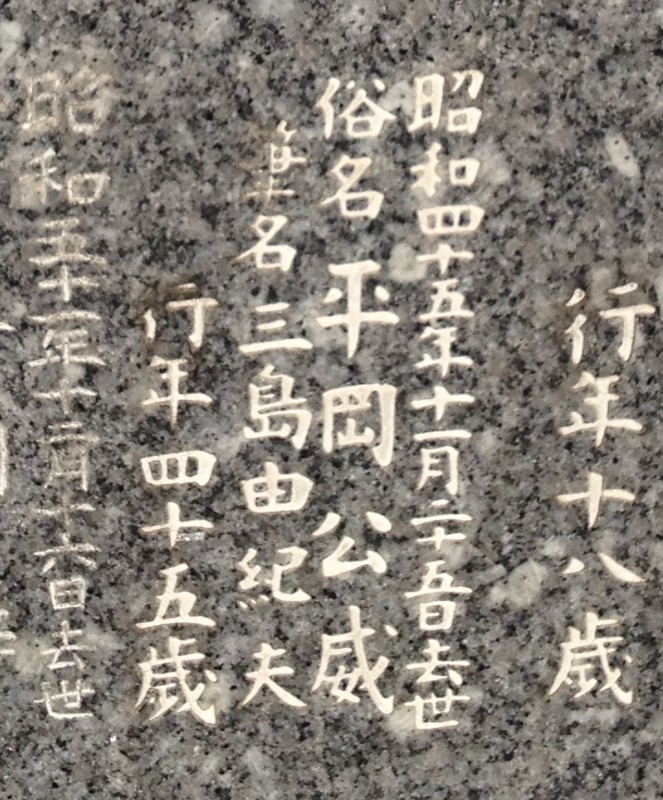 行年十八歳
昭和四十五年十一月二十五日去世
俗名 平岡公威
筆名 三島由紀夫
行年四十五歳
昭和五十一年十二月十六日去世